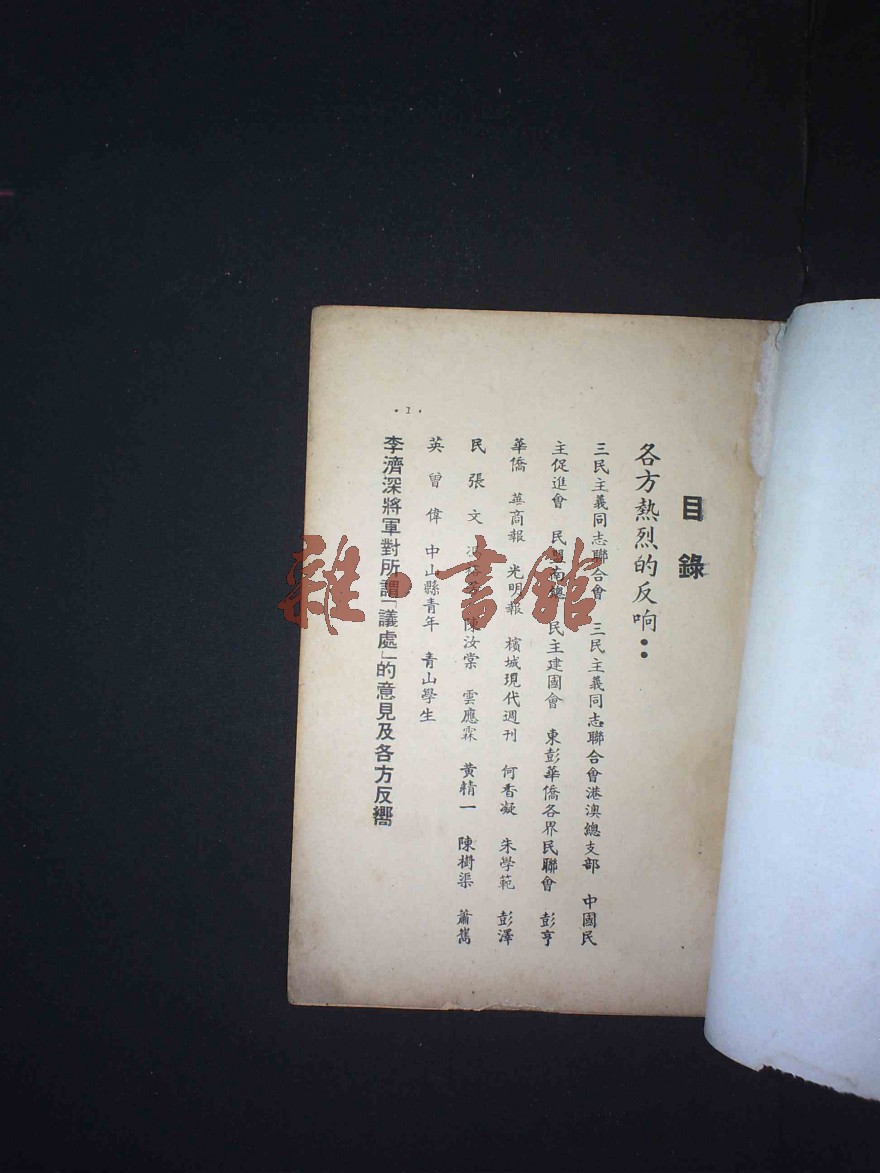 目錄
各方熱烈的反响：
三民主義同志聯合會 三民主義同志聯合會港澳總支部 中國民
主促進會 民盟南總 民主建國會 東彭華僑各界民聯會 彭亨
華僑 華商報 光明報 檳城現代週刊 何香凝 朱學範 彭澤
民 張文 陳汝棠 雲應霖 黃精一 陳樹渠 蕭雋
英 曾偉 中山縣青年 青山學生
李濟深將軍對所謂「議處」的意見及各方反嚮
·1·
雜·書館